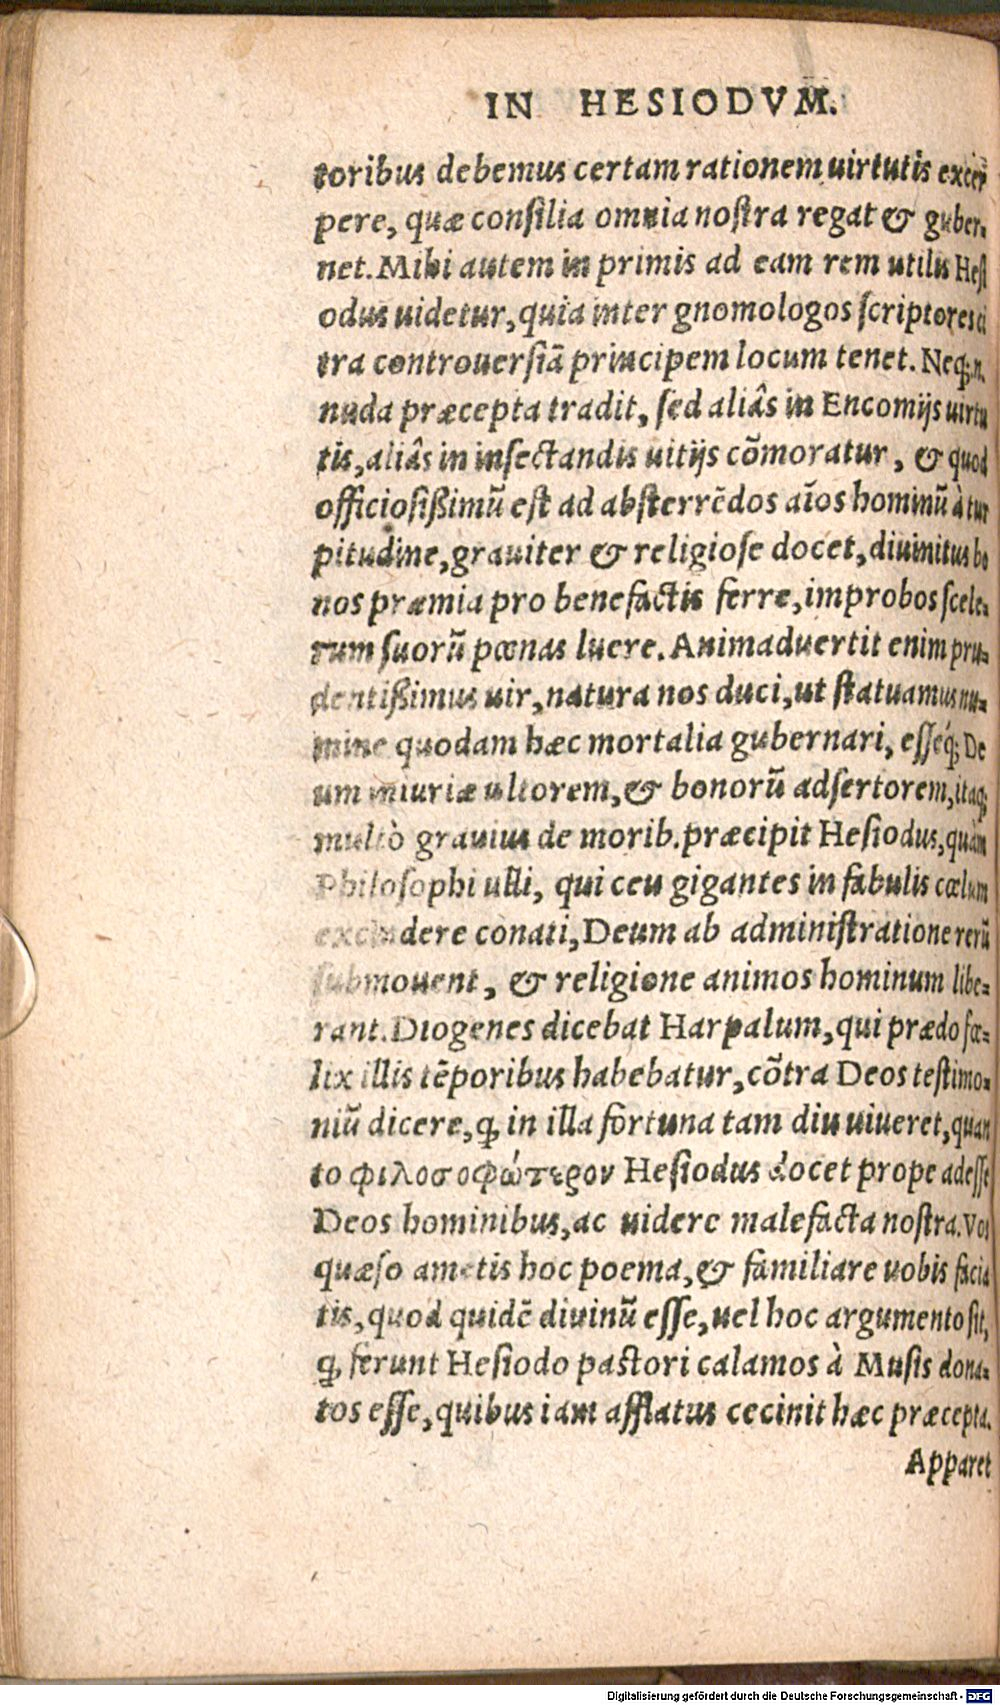 IN HESIODVM.
toribus debemus certam rationem uirtutis excer
pere, quæ consilia omnia nostra regat & guber-
net. Mihi autem in primis ad eam rem utilis Hesi
odus uidetur, quia inter gnomologos scriptores ci
tra controuersiã principem locum tenet. Neq;.n.
nuda præcepta tradit, sed aliâs in Encomijs uirtu
tis, aliâs in insectandis uitijs cõmoratur, & quod
officiosißimũ est ad absterrẽdos aĩos hominũ à tur
pitudine, grauiter & religiose docet, diuinitus bo
nos præmia pro benefactis ferre, improbos scele-
rum suorũ pœnas luere. Animaduertit enim pru-
dentißimus uir, natura nos duci, ut statuamus nu-
mine quodam hæc mortalia gubernari, esseq́; De
um iniuriæ ultorem, & bonorũ adsertorem, itaq;
multò grauius de morib. præcipit Hesiodus, quàm
Philosophi ulli, qui ceu gigantes in fabulis cœlum
excindere conati, Deum ab administratione rerũ
submouent, & religione animos hominum libe-
rant. Diogenes dicebat Harpalum, qui prædo fœ-
lix illis tẽporibus habebatur, cõtra Deos testimo-
niũ dicere, ꝙ in illa fortuna tam diu uiueret, quan
to φιλοσοφώτερον Hesiodus docet prope adesse
Deos hominibus, ac uidere malefacta nostra. Vos
quæso ametis hoc poema, & familiare uobis facia
tis, quod quidẽ diuinũ esse, uel hoc argumento sit,
ꝙ ferunt Hesiodo pastori calamos à Musis dona-
tos esse, quibus iam afflatus cecinit hæc præcepta.
Apparet
Digitalisierung gefördert durch die Deutsche Forschungsgemeinschaft - DFG